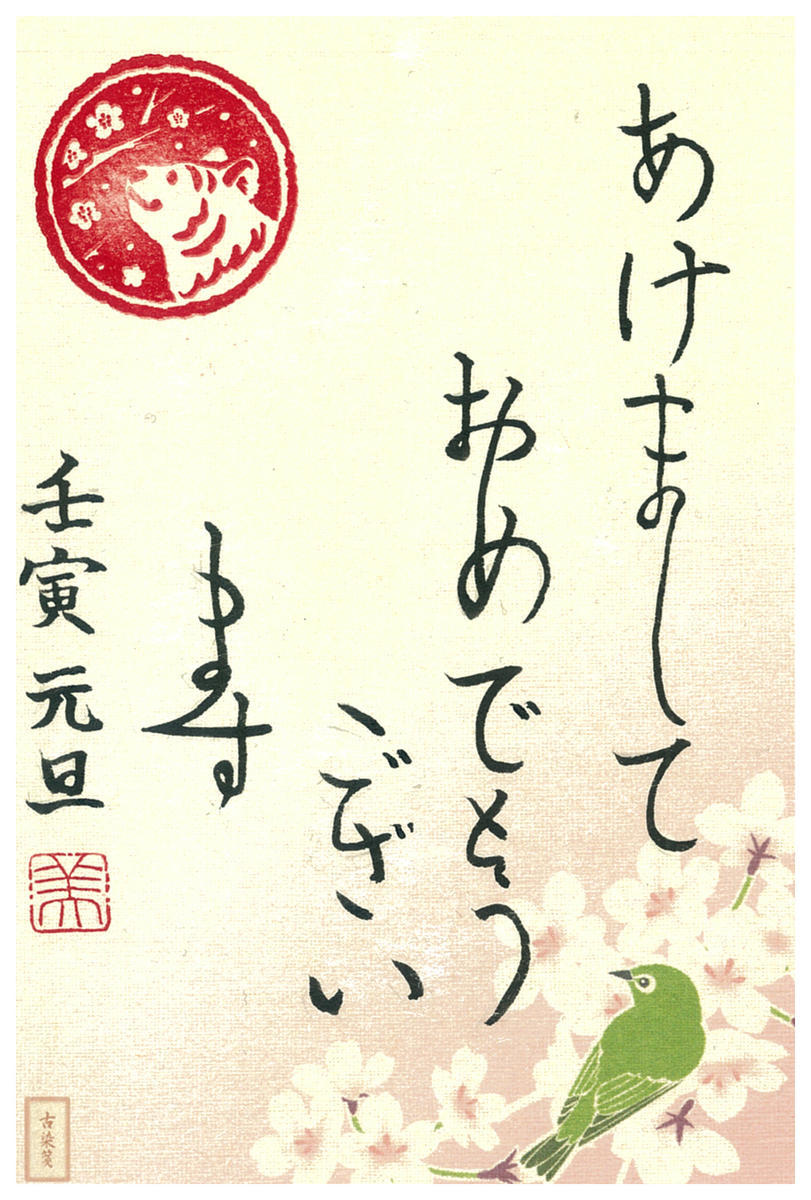 あけまして
おめでとう
ござい
ます
壬寅 元旦
美
古染箋